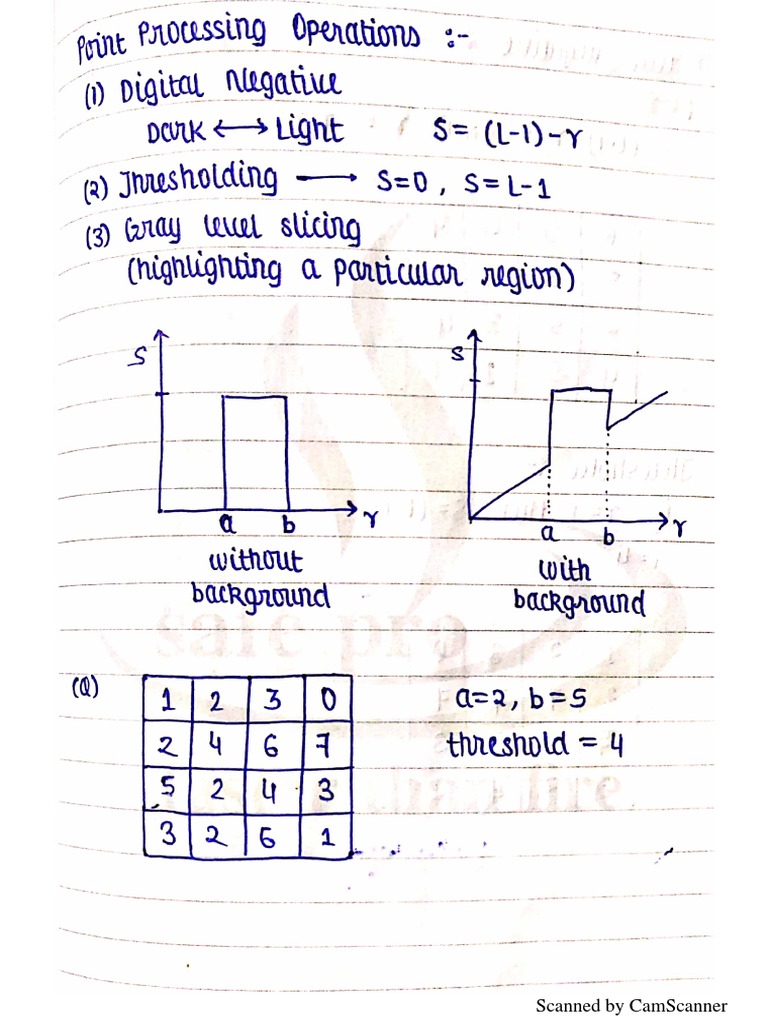 Point Processing Operations :-
(1) Digital Negative
Dark ⟷ Light S = (L-1) - r
(2) Thresholding ⟶ S=0, S=L-1
(3) Gray level slicing
(highlighting a particular region)
S S
a b r a b r
without background with background
(Q)
1 2 3 0 a=2, b=5
2 4 6 7 threshold = 4
5 2 4 3
3 2 6 1
Scanned by CamScanner